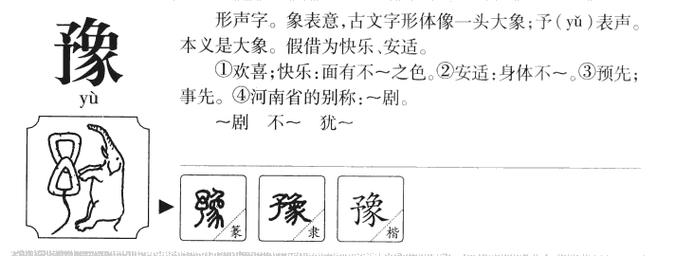 豫
yù
形声字。象表意，古文字形体像一头大象；予（yǔ）表声。
本义是大象。假借为快乐、安适。
①欢喜；快乐：面有不～之色。②安适：身体不～。③预先；
事先。④河南省的别称：～剧。
～剧 不～ 犹～
豫 篆 豫 隶 豫 楷